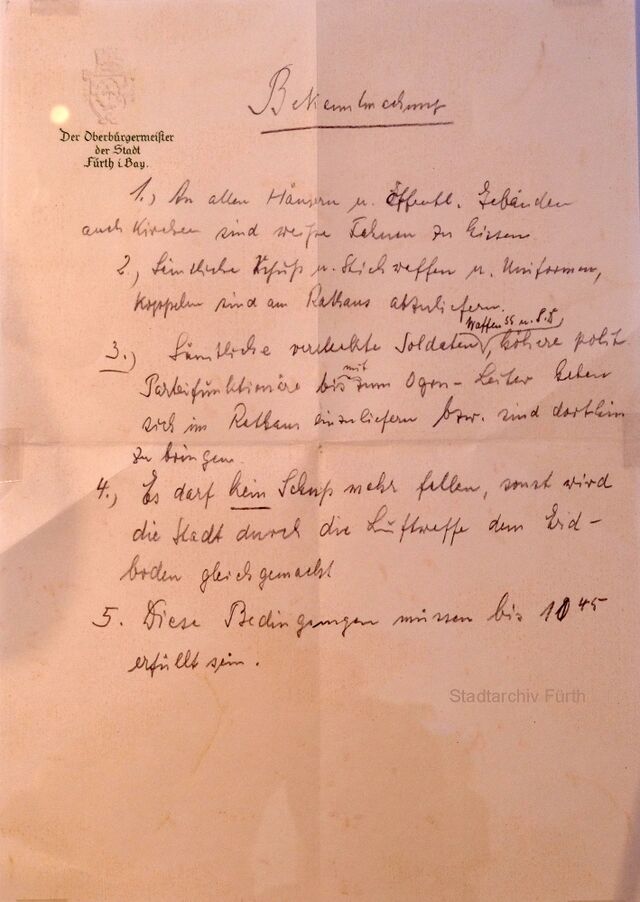 Bekanntmachung
Der Oberbürgermeister
der Stadt
Fürth i. Bay.
1., An allen Häusern u. Öffentl. Gebäuden
auch Kirchen sind weiße Fahnen zu hissen
2., Sämtliche Schuß u. Stichwaffen u. Uniformen,
Koppeln sind am Rathaus abzuliefern.
Waffen SS u. S.D.,
3., Sämtliche versteckte Soldaten, höhere polit.
Parteifunktionäre bis mit zum Ogru-Leiter haben
sich im Rathaus einzuliefern bzw. sind dorthin
zu bringen.
4., Es darf kein Schuß mehr fallen, sonst wird
die Stadt durch die Luftwaffe dem Erd-
boden gleichgemacht
5. Diese Bedingungen müssen bis 10 45
erfüllt sein.
Stadtarchiv Fürth